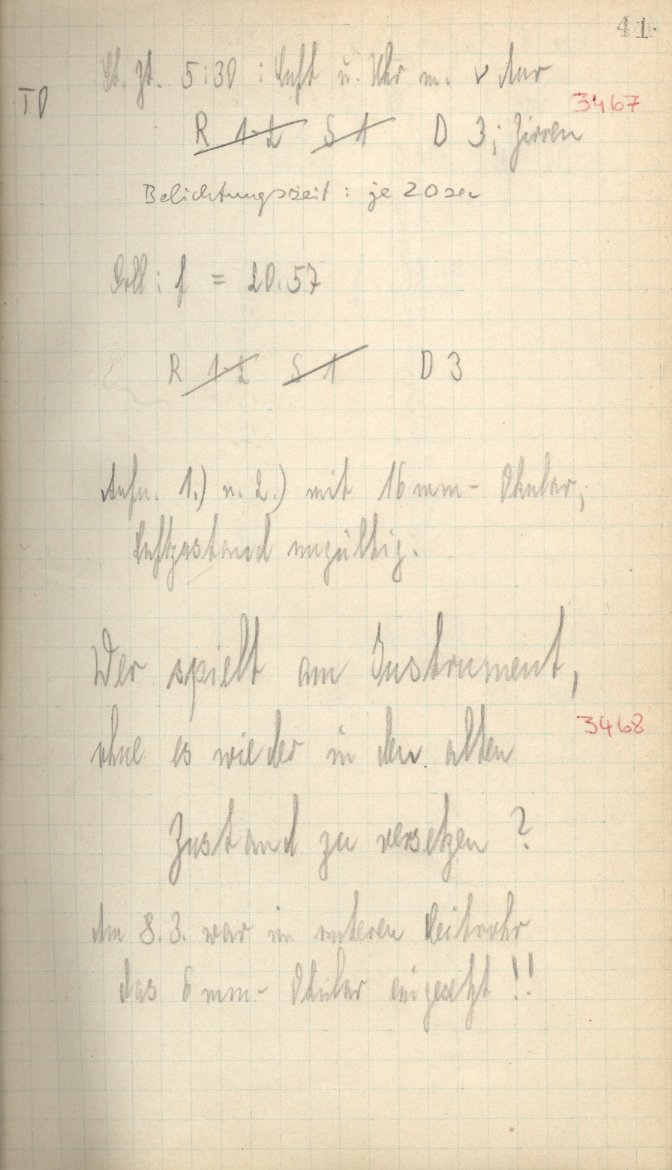 41.
St. Zt. 5:30 : Luft u. Uhr w. v dar
T0
3467
R 1-2 S 1 D 3; Zirren
Belichtungszeit: je 20 sec
f = 20.57
R 1-2 S 1 D 3
Aufn. 1.) u. 2.) mit 16 mm- Okular,
Luftzustand ungültig.
Wer spielt am Instrument,
3468
ohne es wieder in den alten
Zustand zu versetzen ?
Am 8.3. war im unteren Leitrohr
das 6 mm- Okular eingesetzt !!